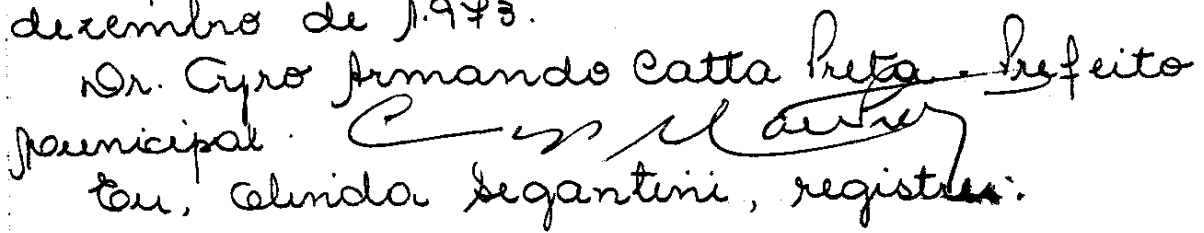 dezembro de 1.973.
Dr. Cyro Armando Catta Preta - Prefeito
municipal.
Eu, Olinda Segantini, registrei.